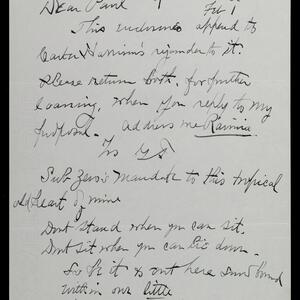 Dear Paul
Feb 1
This encloses append to
Carter Harrison's rejoinder to it.
Please return both, for further
loaning, when you reply to my
proposal. Address me Ravinia
Sub Zero's mandate to this tropical
old heart of mine
Dont stand when you can sit.
Dont sit when you can lie down.
So it is out here
within our little